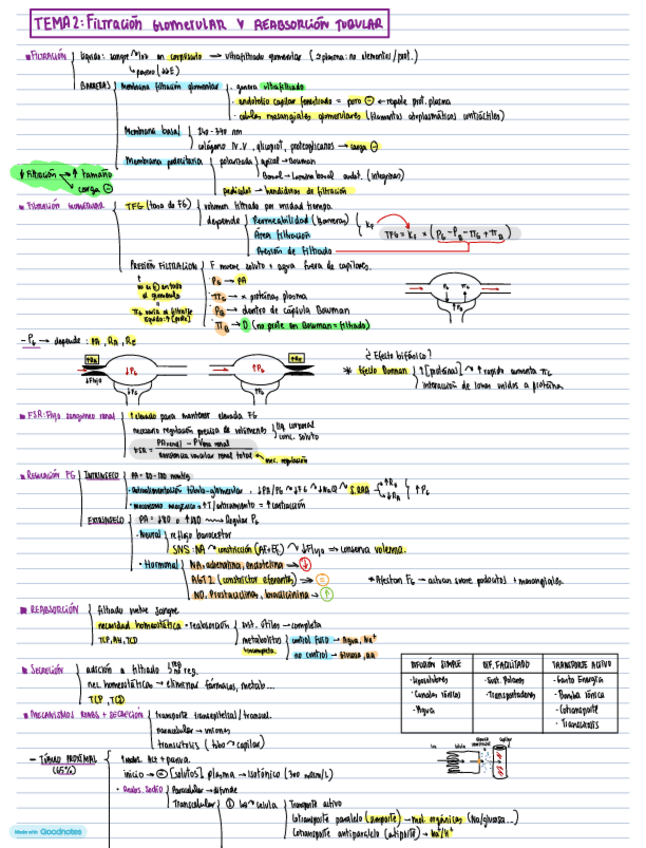 TEMA 2: FILTRACIÓN GLOMERULAR Y REABSORCIÓN TUBULAR
FILTRACIÓN
líquido: sangre en corpúsculo → ultrafiltrado glomerular (≈ plasma: no elementos/prot.)
BARRERAS
Membrana filtración glomerular
genera ultrafiltrado
endotelio capilar fenestrado = poro ⊖ ← repele prot. plasma
células mesangiales glomerulares (filamentos citoplasmáticos contráctiles)
Membrana basal
240-340 nm
colágeno IV-V, glicoprot, proteoglicanos → carga ⊖
Membrana podocitaria
polarizada
apical → Bowman
Basal → Lámina basal endot. (integrinas)
pedicelos → hendiduras de filtración
↓ Filtración
↑ tamaño
carga ⊖
FILTRACIÓN GLOMERULAR
TFG (tasa de FG)
volumen filtrado por unidad tiempo
depende
Permeabilidad (Barreras)
Área filtración
Kf
Presión de filtrado
TFG = Kf × (PG - PB - πG + πB)
PRESIÓN FILTRACIÓN
F mueve soluto + agua fuera de capilares.
PG → PA
πG → × proteínas plasma
PB → dentro de cápsula Bowman
πB → 0 (no prote en Bowman = filtrado)
- PG → depende: PA, RA, RE
↑RA
↓Flujo
↓PG
↓FG
↑PG
↑FG
↑RE
¿Efecto bifásico?
* Efecto Donnan
↑[proteínas] ↑ rápido aumenta πG
interacción de iones unidos a proteína
FSR: Flujo sanguíneo renal
↑ elevado para mantener elevada FG
necesario regulación precisa de volúmenes
líq. corporal
conc. soluto
FSR = PA renal - PVena renal
Resistencia vascular renal total
mec. regulación
REGULACIÓN FG
INTRÍNSECO
PA = 80-180 mmHg
Autoalimentación túbulo-glomerular
S.RAA
↑RE
↓RA
↑PG
mecanismo miogénico = ↑T/estiramiento = ↑contracción
EXTRÍNSECO
PA = ↓80 o ↑180 → Regular PG
Neural
reflejo baroceptor
SNS: NA → constricción (AF+EF) ↓Flujo ⇒ conserva volemia.
Hormonal
NA, adrenalina, endotelina → ↓
AGT2 (constrictor eferentes) → =
NO, Prostaciclinas, bradicinina → ↑
* Afectan FG → actúan sobre podocitos + mesangiales.
REABSORCIÓN
filtrado vuelve sangre
necesidad homeostática
TCP, AH, TCD
reabsorción
sust. útiles → completa
metabolitos
incompleta
control fisio → Agua, Na+
no control → Glucosa, aa
SECRECIÓN
adición a filtrado
nec. homeostáticas → eliminar fármacos, metab...
TCP, TCD
DIFUSIÓN SIMPLE
DIF. FACILITADO
TRANSPORTE ACTIVO
- Liposolubres
- Canales iónicos
- Agua
- Sust. Polares
- Transportadores
- Gasto Energía
- Bomba iónica
- Cotransporte
- Transcitosis
MECANISMOS REABS + SECRECIÓN
transporte transepitelial/transcel.
paracelular → uniones
transcitosis (tubo → capilar)
- TÚBULO PROXIMAL
(65%)
inicio → [solutos] plasma → isotónico (300 mOsm/L)
Reabs. Sodio
Paracelular → difunde
Transcelular
① luz → célula
Transporte activo
Cotransporte paralelo (simporte) → mol. orgánicas (Na/glucosa...)
Cotransporte antiparalelo (antiporte) → Na+/H+
Made with Goodnotes